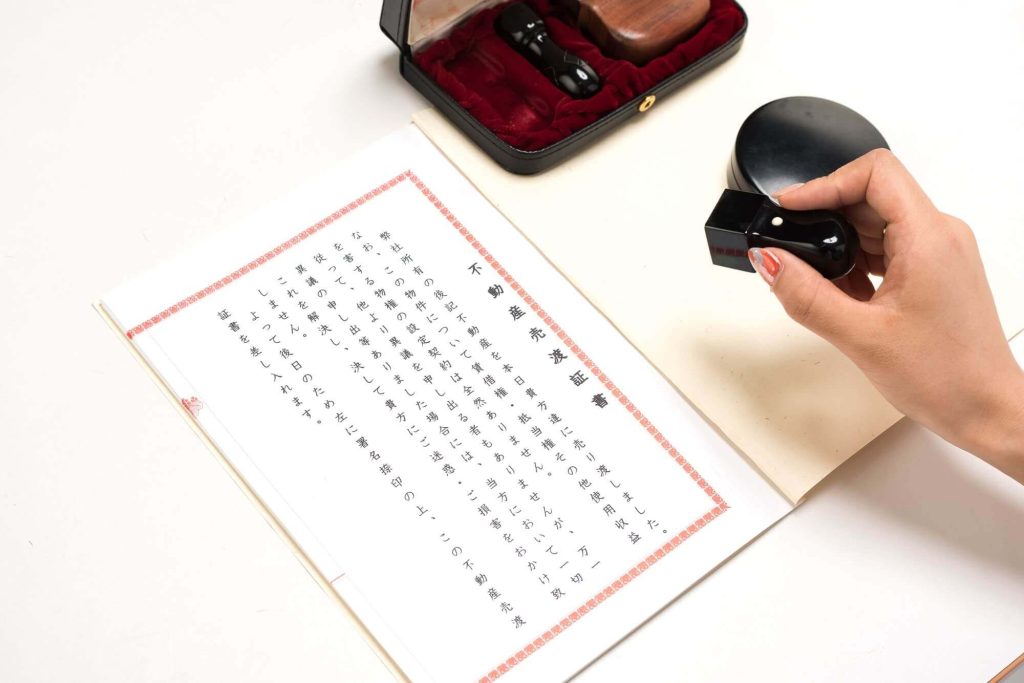 不動産売渡証書
弊社所有の後記不動産を本日貴方達に売り渡しました。
なお、この物件について賃借権・抵当権その他使用収益
を害する物権の設定契約は全然ありません。
従って、他より異議を申し出る者もありませんが、万一
異議の申し出等ありました場合には、当方において一切
これを解決し、決して貴方にご迷惑・ご損害をおかけ致
しません。
よって後日のため左に署名捺印の上、この不動産売渡
証書を差し入れます。